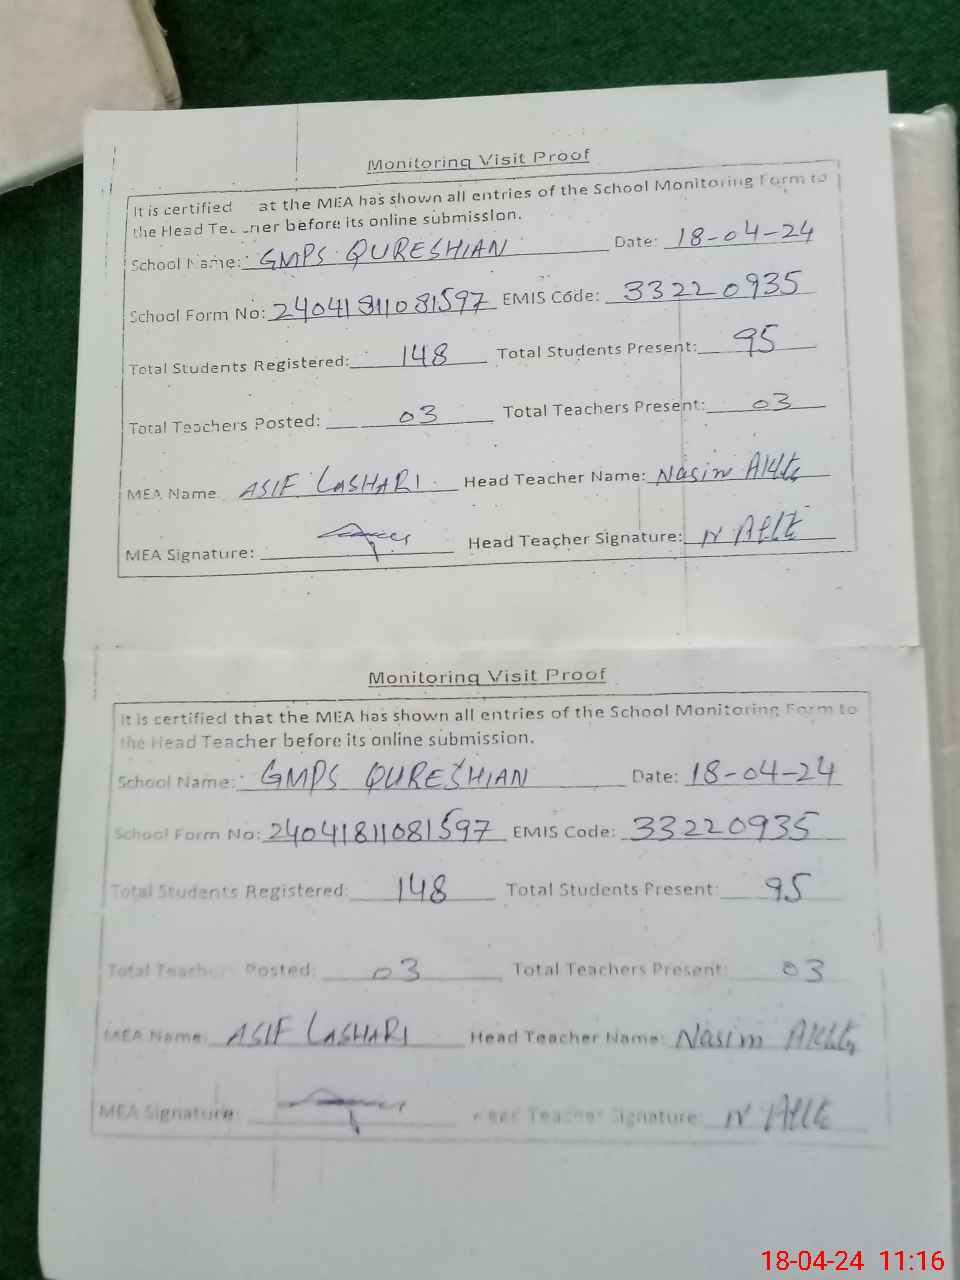 Monitoring Visit Proof
It is certified at the MEA has shown all entries of the School Monitoring Form to
the Head Teacher before its online submission.
School Name: GMPS QURESHIAN Date: 18-04-24
School Form No: 24041811081597 EMIS Code: 33220935
Total Students Registered: 148 Total Students Present: 95
Total Teachers Posted: 03 Total Teachers Present: 03
MEA Name: ASIF LASHARI Head Teacher Name: Nasim
MEA Signature: Head Teacher Signature: N
Monitoring Visit Proof
It is certified that the MEA has shown all entries of the School Monitoring Form to
the Head Teacher before its online submission.
School Name: GMPS QURESHIAN Date: 18-04-24
School Form No: 24041811081597 EMIS Code: 33220935
Total Students Registered: 148 Total Students Present: 95
Total Teachers Posted: 03 Total Teachers Present: 03
MEA Name: ASIF LASHARI Head Teacher Name: Nasim
MEA Signature: Head Teacher Signature: N
18-04-24 11:16